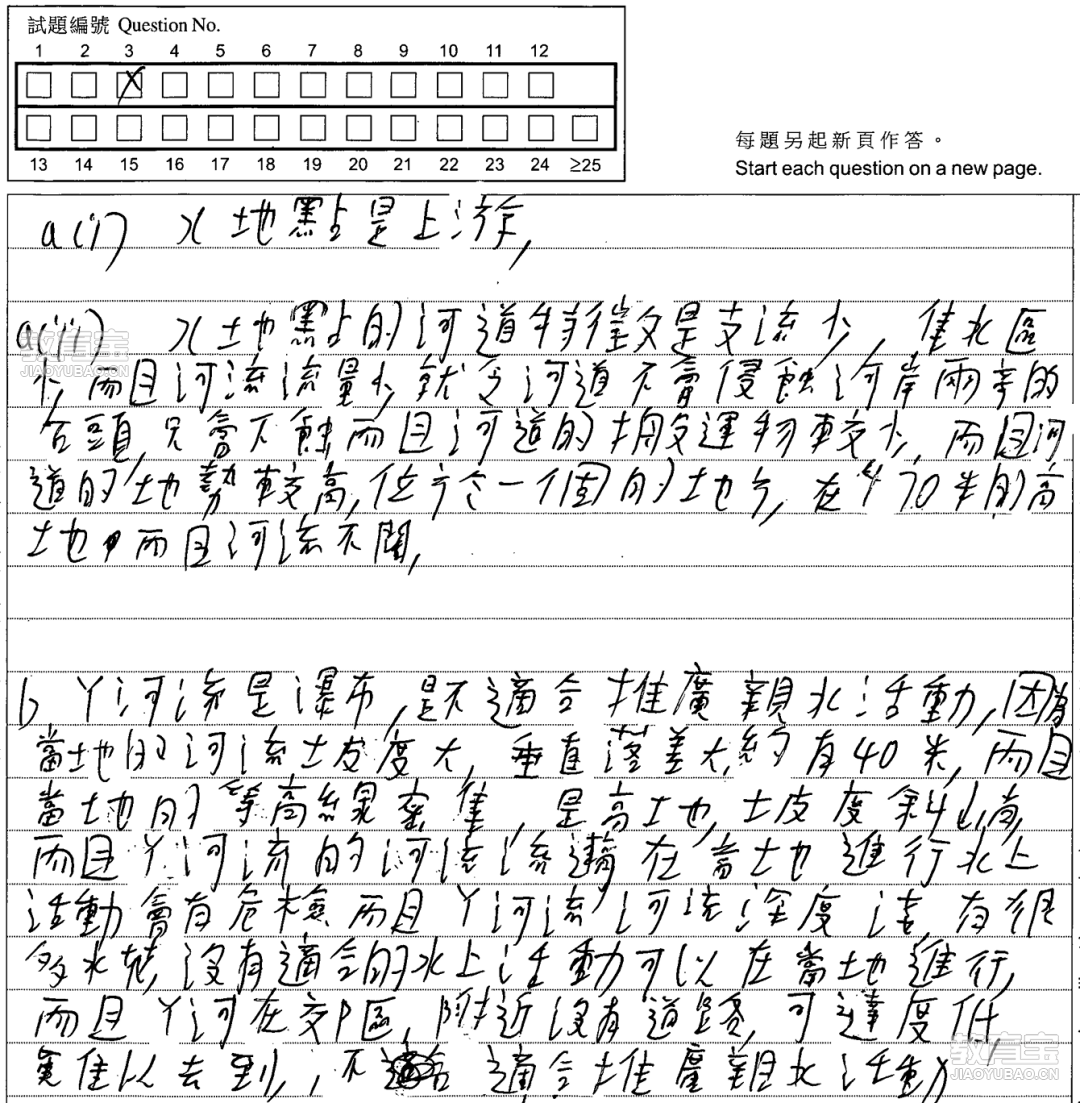 試題編號 Question No.
1 2 3 4 5 6 7 8 9 10 11 12
13 14 15 16 17 18 19 20 21 22 23 24 ≥25
每題另起新頁作答。
Start each question on a new page.
a(i) X 地點是上游,
a(ii) X 地點的河道特徵是支流少, 集水區
少, 而且河流流量少, 就令河道不會侵蝕河岸兩旁的
石頭, 只會下蝕而且河道的搬運物較少, 而且河
道的地勢較高, 位於一個的地方, 在470米的高
地, 而且河流不闊,
b Y河流是瀑布, 是不適合推廣親水活動, 因為
當地的河流坡度大, 垂直落差大, 約有40米, 而且
當地的等高線密集, 是高地, 坡度斜
而且Y河流的河流流 在當地進行水上
活動會有危險而且Y河流河流深度淺, 有很
多水 沒有適合的水上活動可以在當地進行,
而且Y河在交區, 附近沒有道路, 可達度低
難以去到, 不適合推廣親水活動
教育宝
JIAOYUBAO.CN
教育宝
JIAOYUBAO.CN